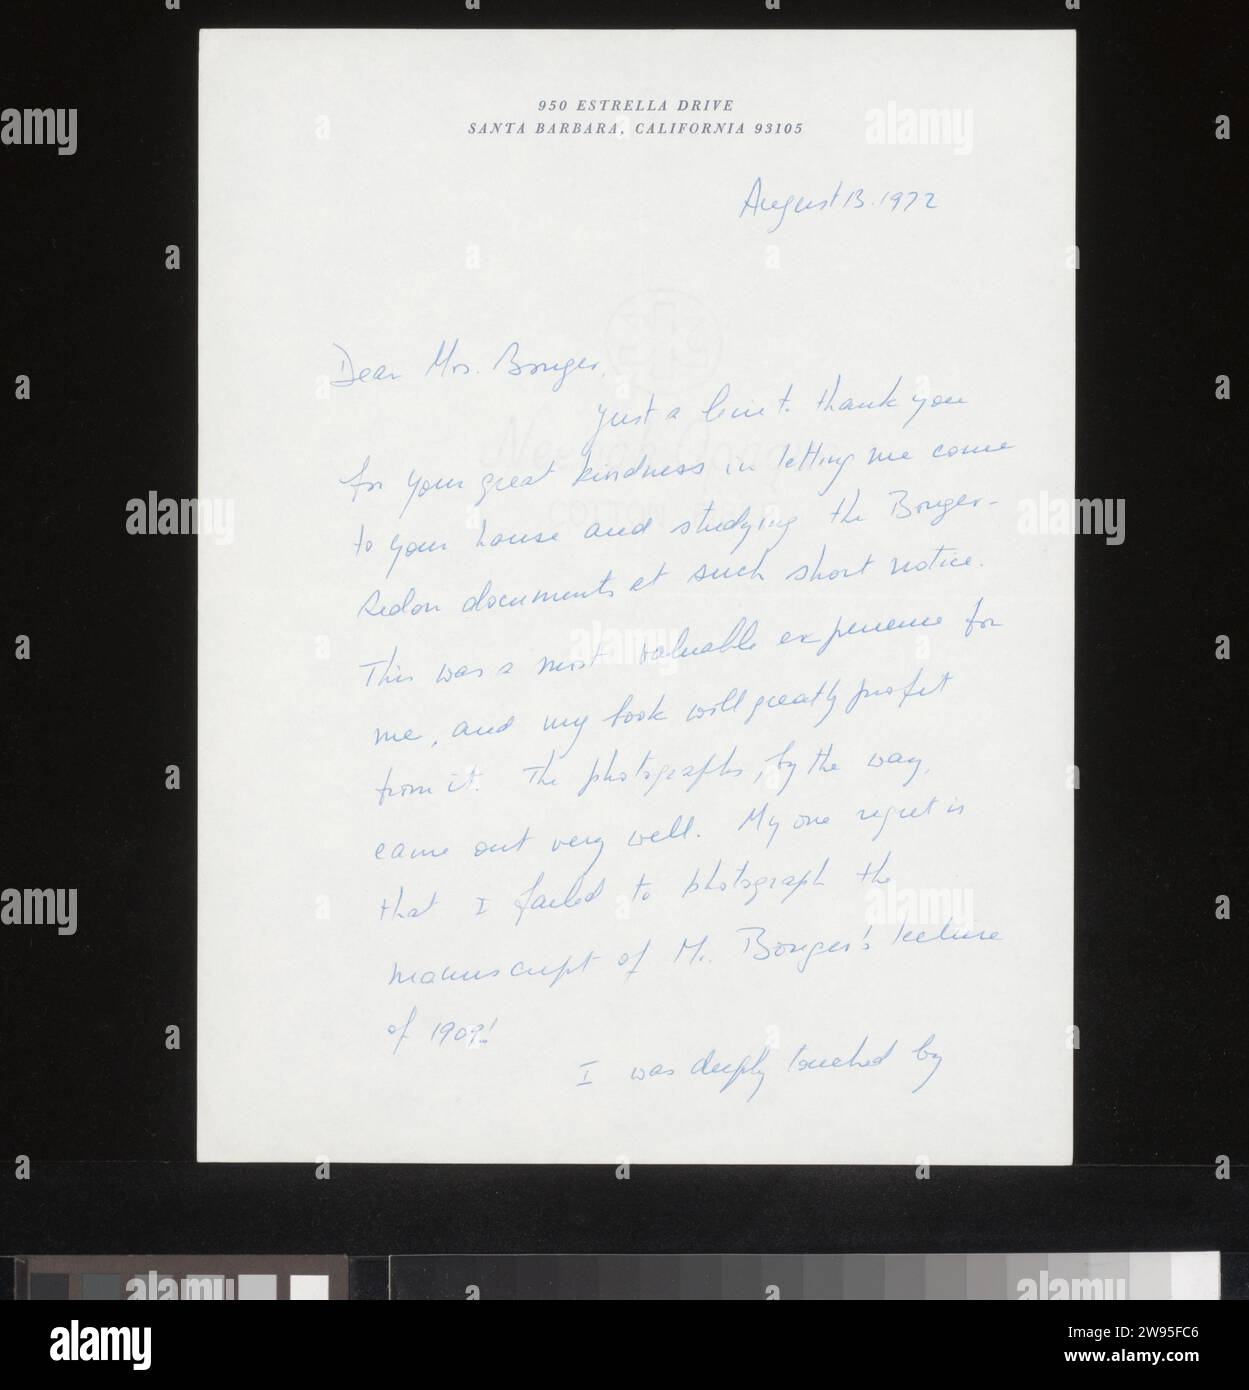 950 ESTRELLA DRIVE
SANTA BARBARA, CALIFORNIA 93105
August 13. 1972
Dear Mrs. Bonger,
Just a line t. thank you
for your great kindness in letting me come
to your house and studying the Bonger-
Redon documents at such short notice.
This was a most valuable experience for
me, and my book will greatly profit
from it. The photographs, by the way,
came out very well. My one regret is
that I failed to photograph the
manuscript of Mr. Bonger's lecture
of 1909!
I was deeply touched by
alamy
Image ID: 2W95FC6
www.alamy.com